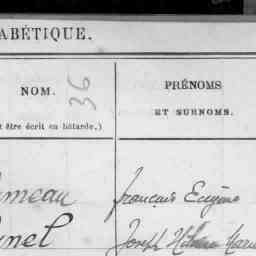 ABÉTIQUE.
NOM.
36
PRÉNOMS
ET SURNOMS.
t être écrit en bâtarde.)
meau
françois Eugène
nel
Joseph Hilaire